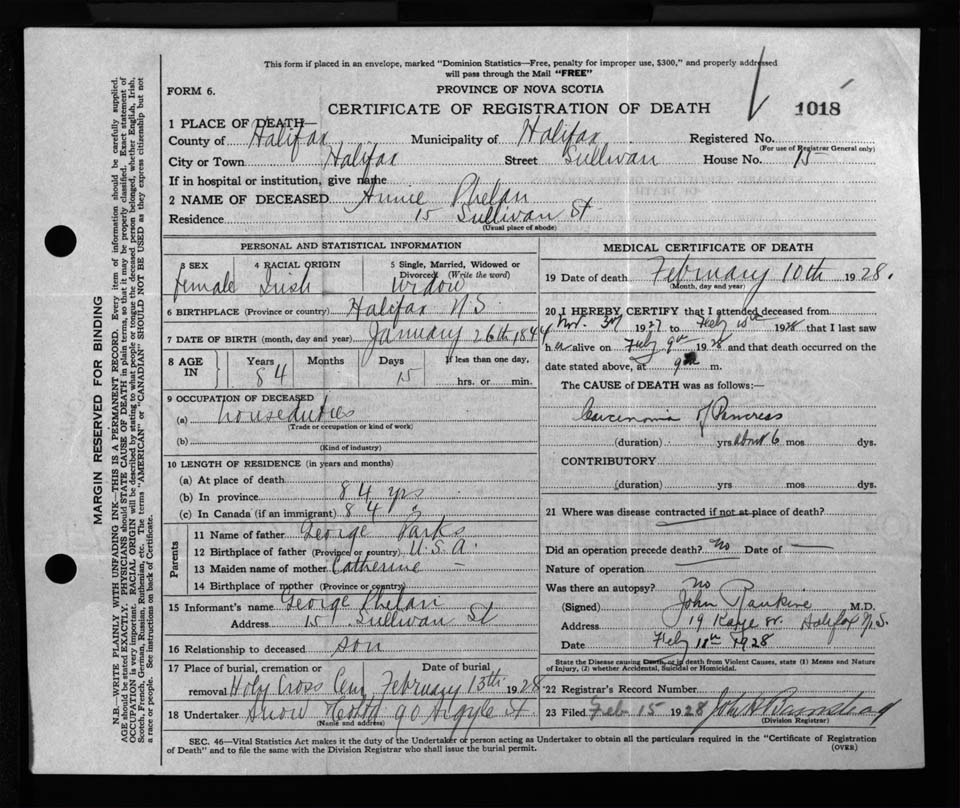 This form if placed in an envelope, marked "Dominion Statistics—Free, penalty for improper use, $300," and properly addressed
will pass through the Mail "FREE"
FORM 6.
PROVINCE OF NOVA SCOTIA
CERTIFICATE OF REGISTRATION OF DEATH
1018
1 PLACE OF DEATH—
County of Halifax Municipality of Halifax Registered No.
(For use of Registrar General only)
City or Town Halifax Street Sullivan House No. 15
If in hospital or institution, give name
2 NAME OF DECEASED Annie Phelan
Residence 15 Sullivan St
(Usual place of abode)
PERSONAL AND STATISTICAL INFORMATION
3 SEX 4 RACIAL ORIGIN 5 Single, Married, Widowed or
Divorced (Write the word)
female Irish Widow
6 BIRTHPLACE (Province or country) Halifax N S
7 DATE OF BIRTH (month, day and year) January 26th 1844
8 AGE IN Years Months Days If less than one day,
84 15 hrs. or min.
9 OCCUPATION OF DECEASED
(a) houseduties
(Trade or occupation or kind of work)
(b)
(Kind of industry)
10 LENGTH OF RESIDENCE (in years and months)
(a) At place of death
(b) In province 84 yrs
(c) In Canada (if an immigrant) 84 "
Parents
11 Name of father George Parks
12 Birthplace of father (Province or country) U.S.A.
13 Maiden name of mother Catherine —
14 Birthplace of mother (Province or country)
15 Informant's name George Phelan
Address 15 Sullivan St
16 Relationship to deceased son
17 Place of burial, cremation or Date of burial
removal Holy Cross Cem February 13th 1928
18 Undertaker Snow 90 Argyle St
(Name and address)
MEDICAL CERTIFICATE OF DEATH
19 Date of death February 10th 1928.
(Month, day and year)
20 I HEREBY CERTIFY that I attended deceased from
Nov. 1927 to Feby 10th 1928 that I last saw
her alive on Feby 9th 1928 and that death occurred on the
date stated above, at 9 m.
The CAUSE of DEATH was as follows:—
Carcinoma of Pancreas
(duration) yrs about 6 mos dys.
CONTRIBUTORY
(duration) yrs mos dys.
21 Where was disease contracted if not at place of death?
Did an operation precede death? No Date of —
Nature of operation
Was there an autopsy? No
(Signed) John Rankine M.D.
Address 19 Kaye St. Halifax N.S.
Date Feby 11th 1928
State the Disease causing Death, or in death from Violent Causes, state (1) Means and Nature
of Injury, (2) whether Accidental, Suicidal or Homicidal.
22 Registrar's Record Number
23 Filed Feb 15 1928 John H Barnstead
(Division Registrar)
SEC. 46—Vital Statistics Act makes it the duty of the Undertaker or person acting as Undertaker to obtain all the particulars required in the "Certificate of Registration
of Death" and to file the same with the Division Registrar who shall issue the burial permit.
(OVER)
MARGIN RESERVED FOR BINDING
N.B.—WRITE PLAINLY WITH UNFADING INK—THIS IS A PERMANENT RECORD. Every item of information should be carefully supplied.
AGE should be stated EXACTLY. PHYSICIANS should STATE CAUSE OF DEATH in plain terms, so that it may be properly classified. Exact statement of
OCCUPATION is very important. RACIAL ORIGIN will be described by stating to what people or tongue the deceased person belonged, whether English, Irish,
Scotch, French, German, Russian, Ruthenian, etc. The terms "AMERICAN" or "CANADIAN" SHOULD NOT BE USED as they express citizenship but not
a race or people. See instructions on back of Certificate.